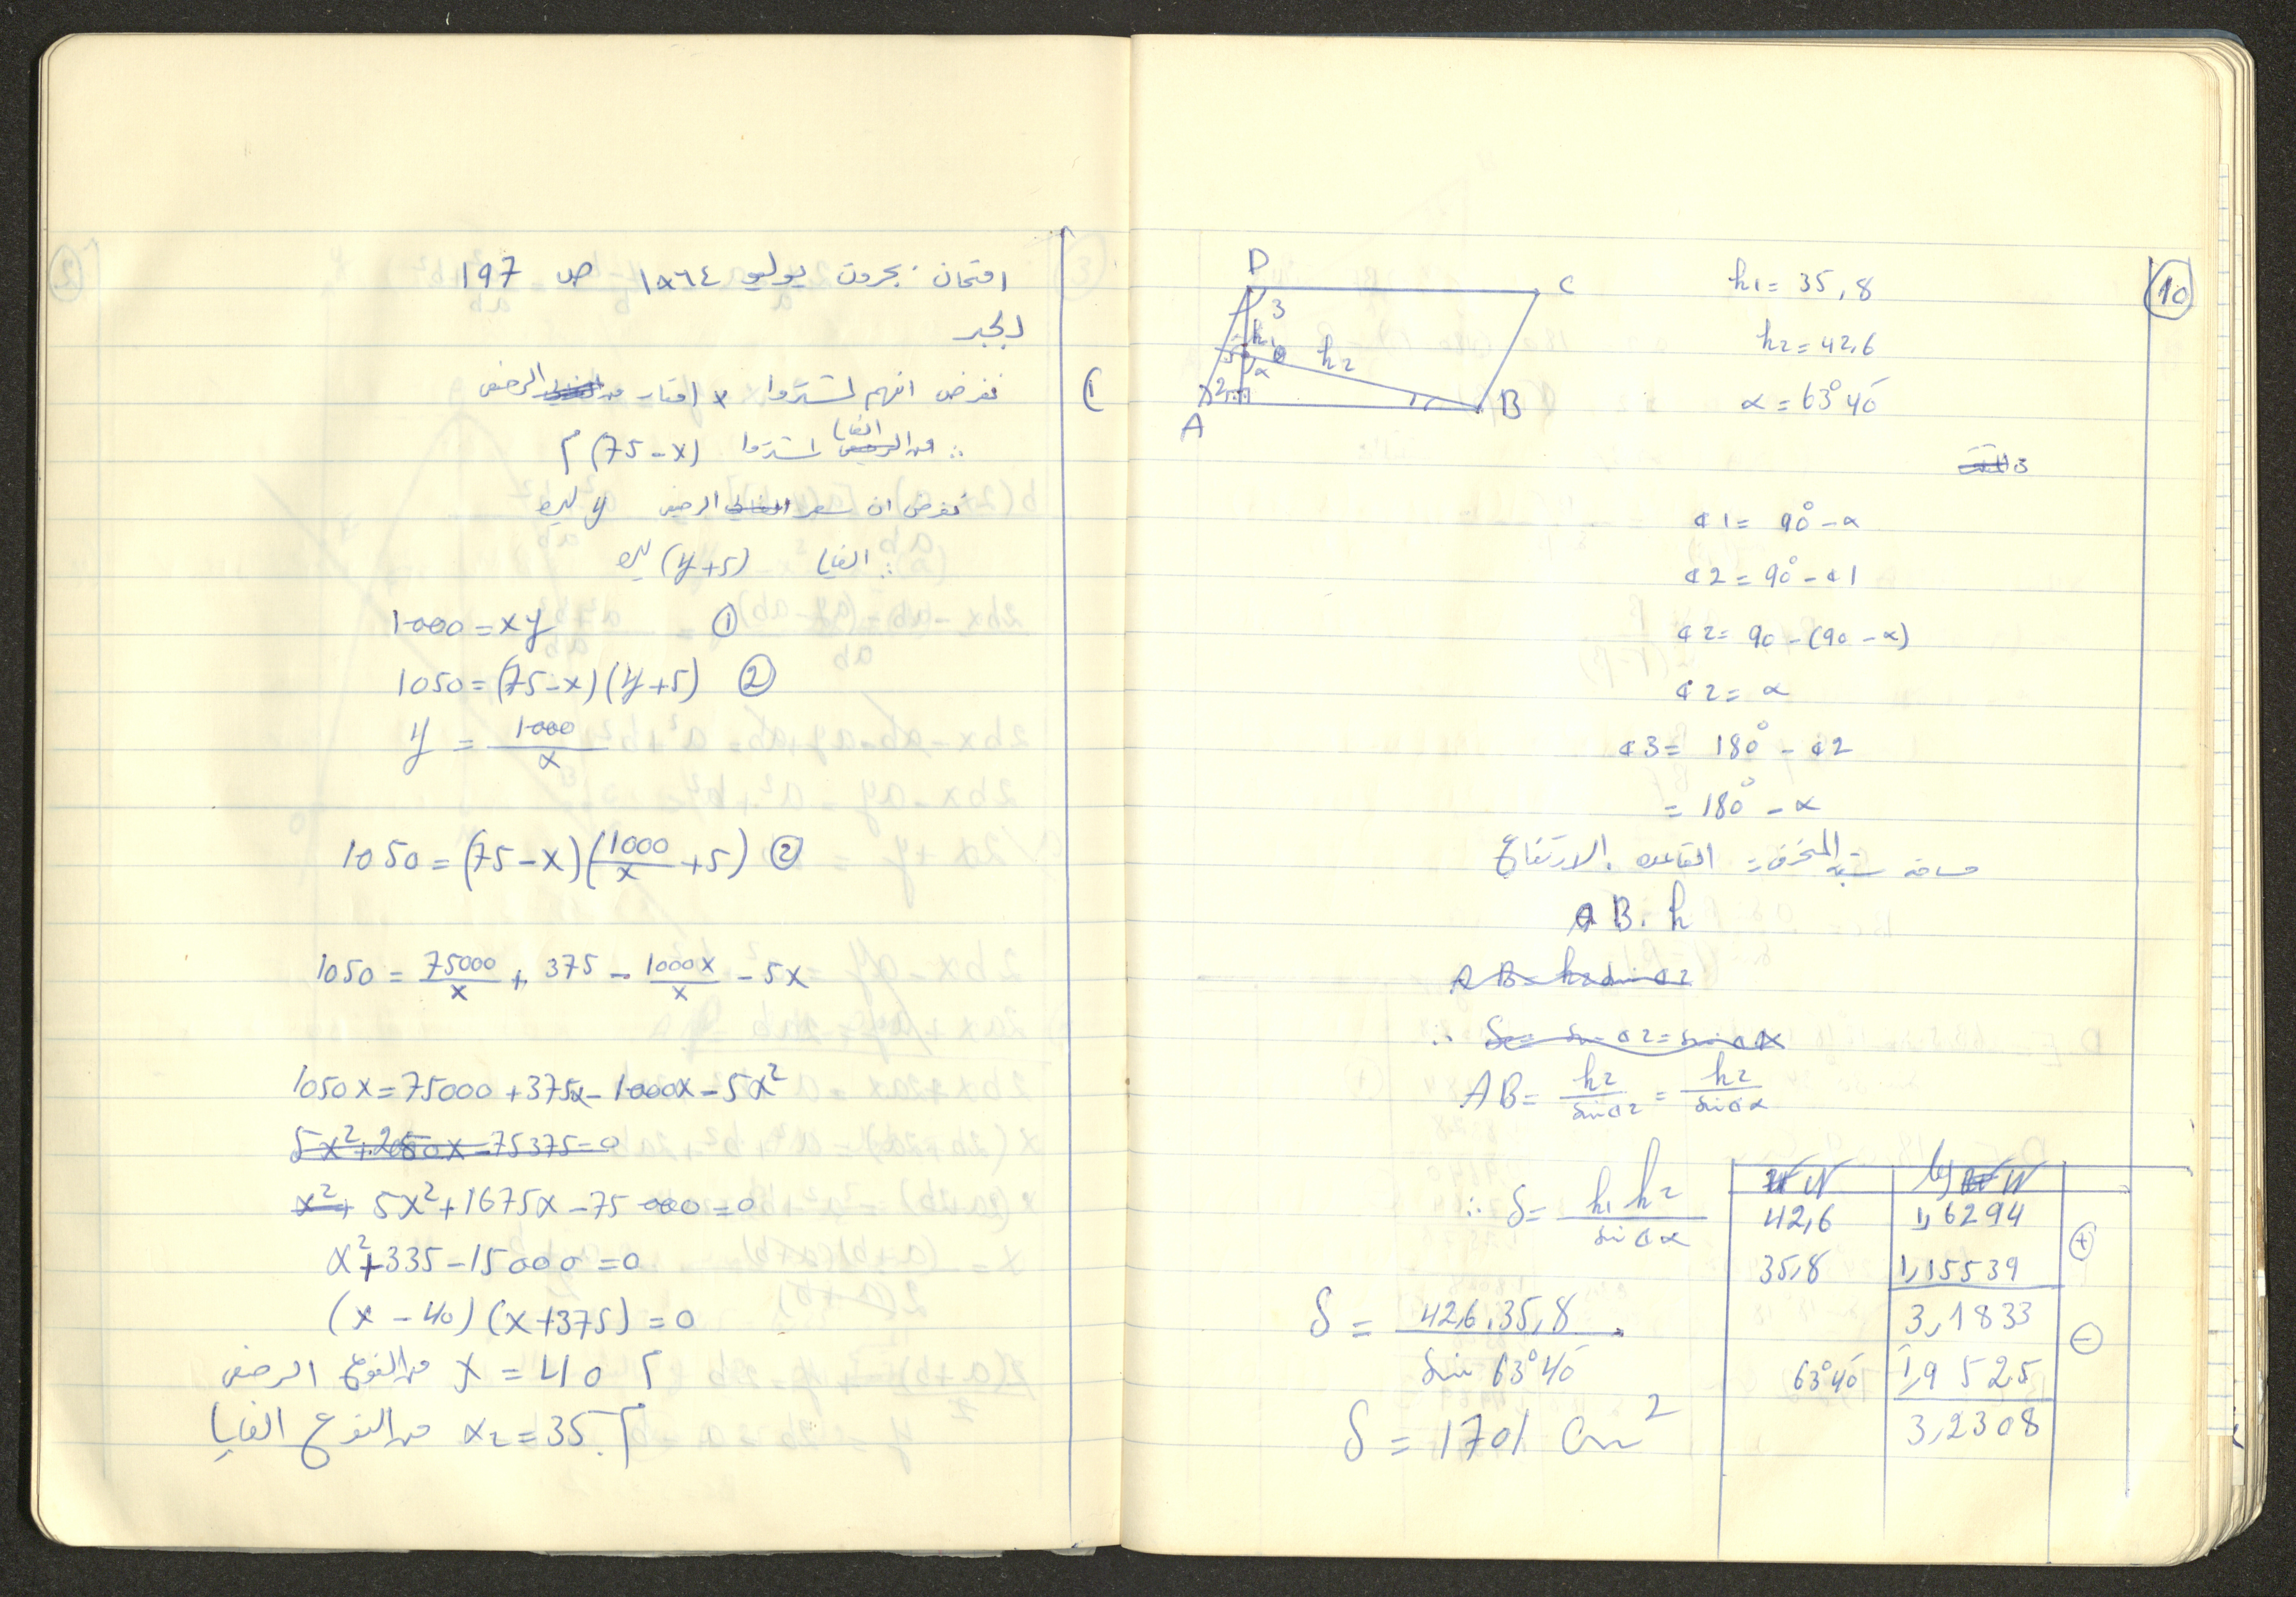 امتحان بجروت يوليو ١٩٦٤ ص 197
الجبر
1) نفرض انهم اشتروا x امتار من الرخيص
∴ من الغالي اشتروا (75-x) م
نفرض ان سعر الرخيص y ليره
∴ الغالي (y+5) ليره
1000 = xy ①
1050 = (75-x)(y+5) ②
y = 1000/x
1050 = (75-x)(1000/x +5) ②
1050 = 75000/x + 375 - 1000x/x - 5x
1050x = 75000 + 375x - 1000x - 5x²
5x² + 2850x - 75375 = 0
x² + 5x² + 1675x - 75000 = 0
x² + 335 - 15000 = 0
(x - 40) (x + 375) = 0
من النوع الرخيص x = 40 م
من النوع الغالي x₂ = 35 م
10
D C
3
h1
h2
α
2 1
A B
h1 = 35,8
h2 = 42,6
α = 63°40'
∢1 = 90° - α
∢2 = 90° - ∢1
∢2 = 90 - (90 - α)
∢2 = α
∢3 = 180° - ∢2
= 180° - α
مساحة شبه المنحرف = القاعده . الارتفاع
AB . h
AB = h2 sin ∢2
AB = h2/sin∢2 = h2/sin∢α
∴ S = h1 h2/sin∢α
S = 42,6 . 35,8/sin 63°40'
S = 1701 cm²
N log N
42,6 1,6294
35,8 1,15539 +
3,1833
63°40' 1,9525 −
3,2308